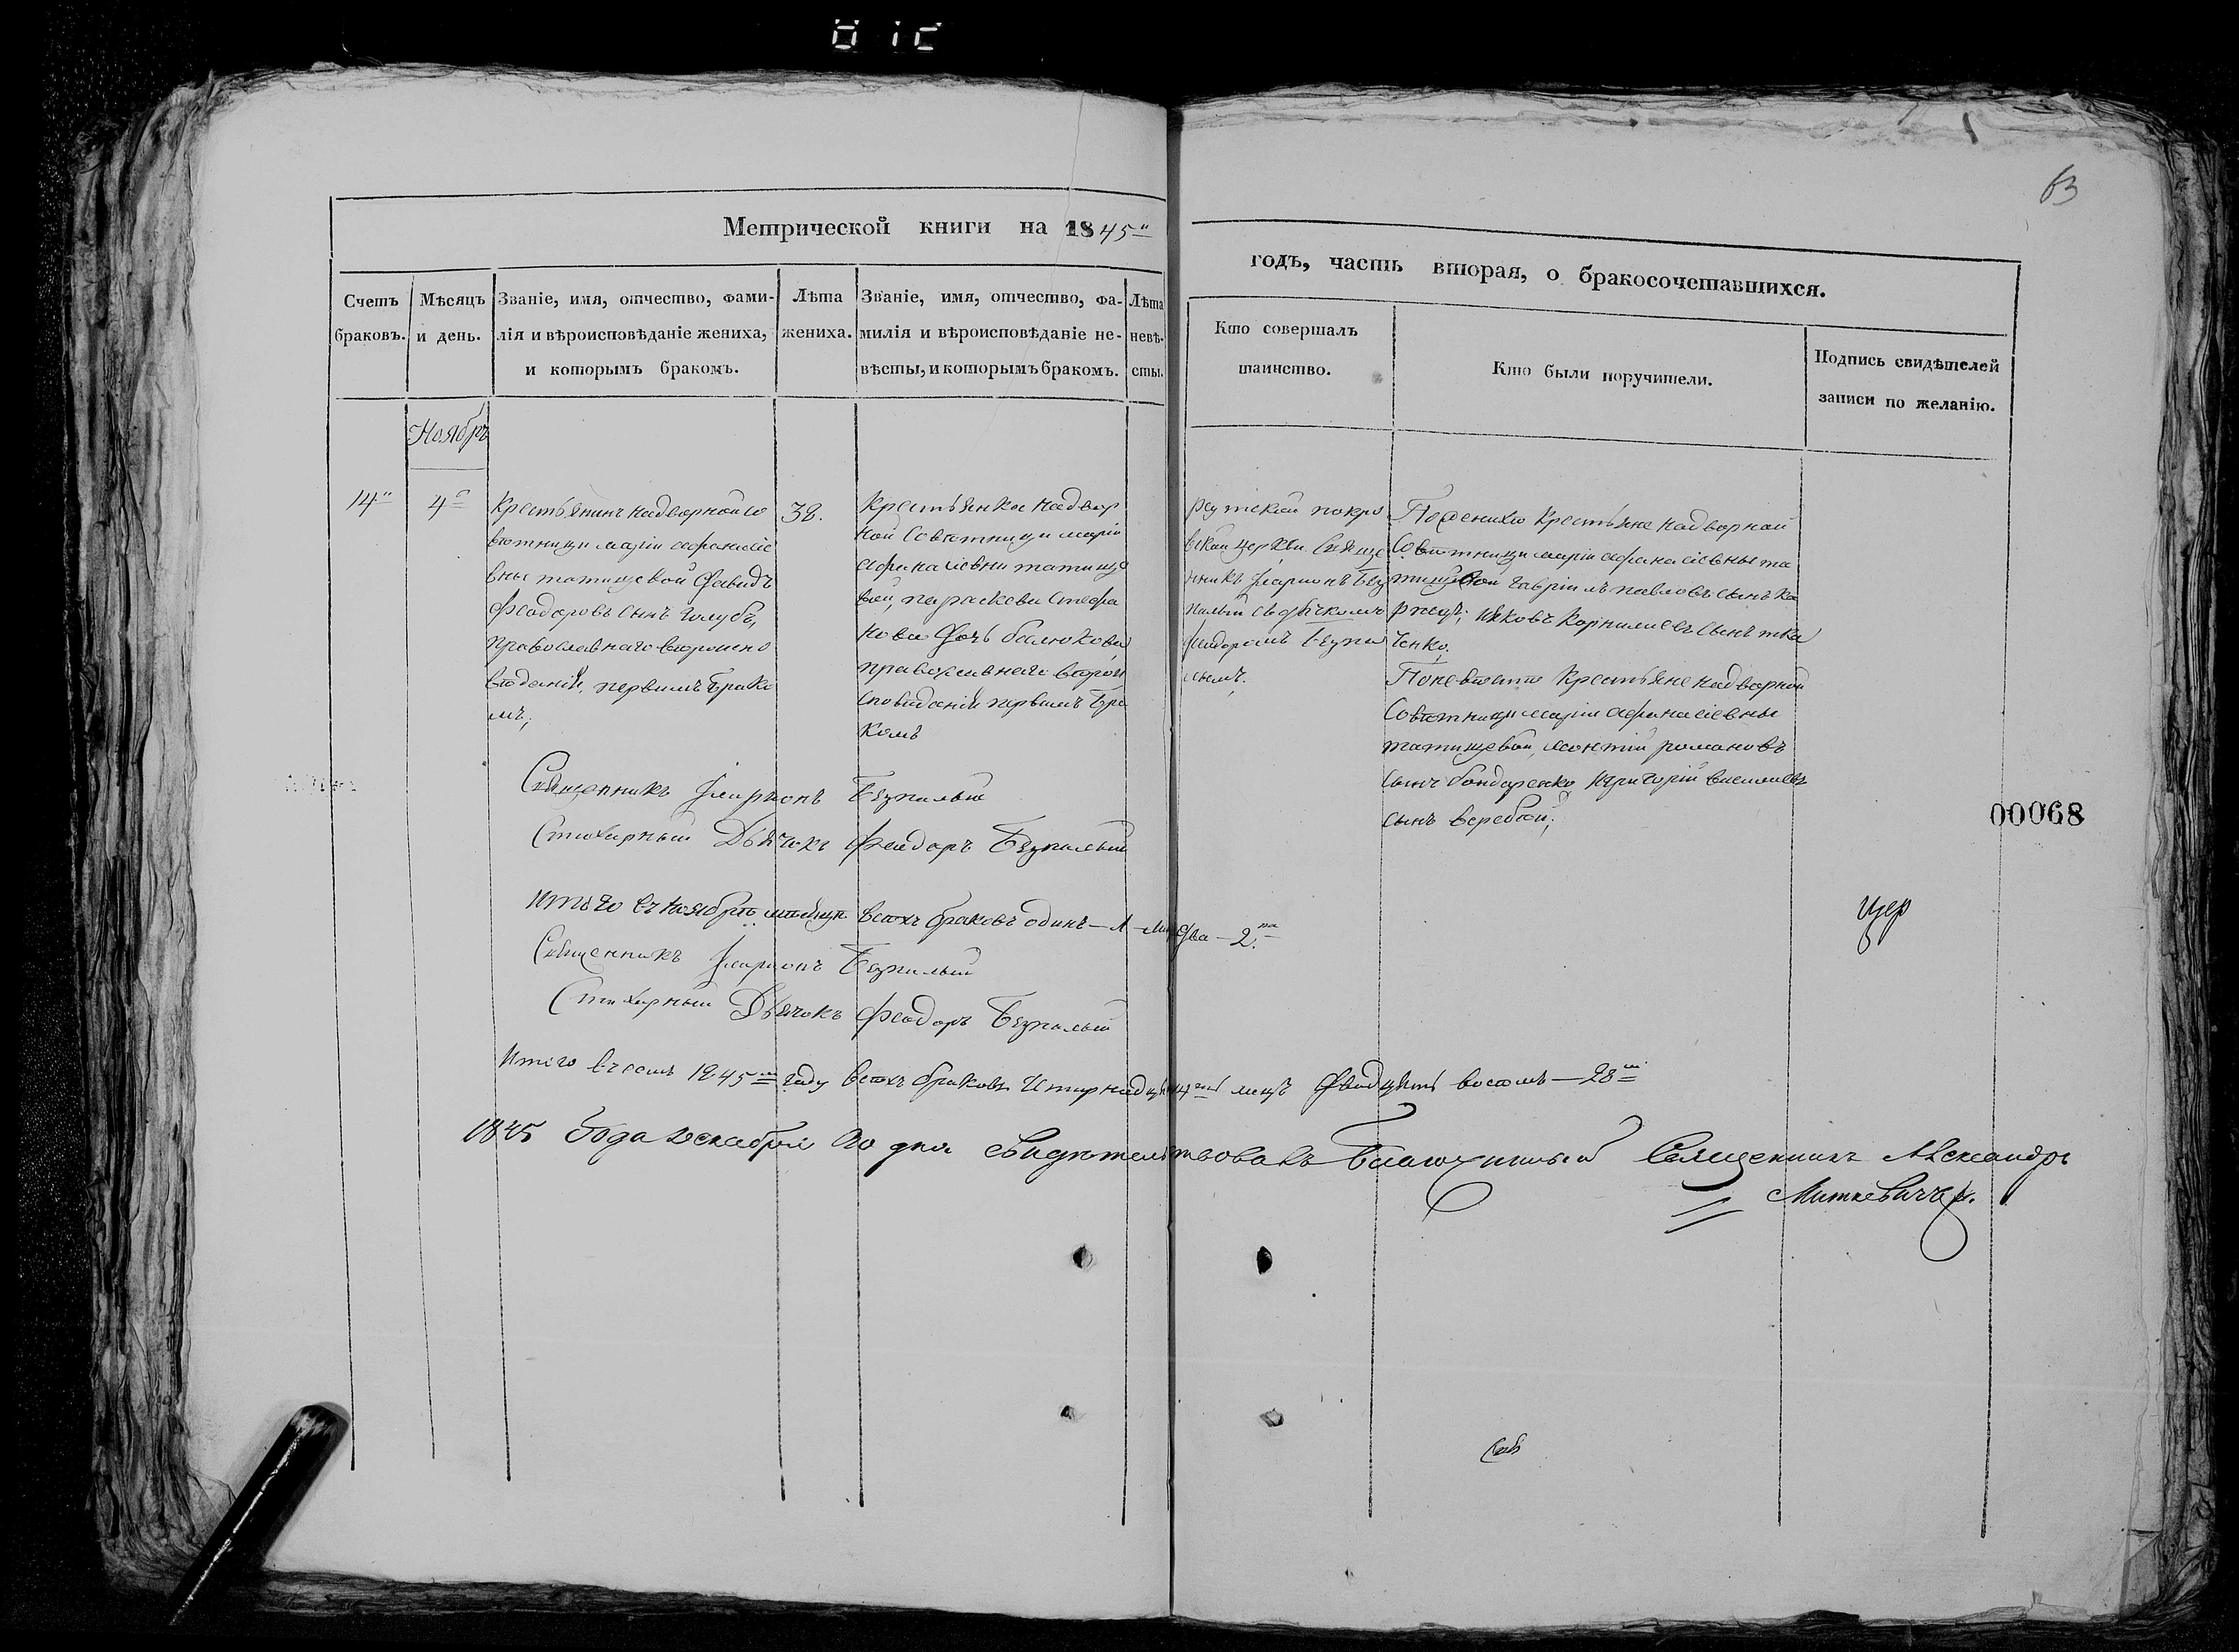 63
Метрической книги на 1845"
годъ, часть вторая, о бракосочетавшихся.
Счетъ браковъ.
Мѣсяцъ и день.
Званіе, имя, отчество, фами-
лія и вѣроисповѣданіе жениха,
и которымъ бракомъ.
Лѣта
жениха.
Званіе, имя, отчество, фа-
милія и вѣроисповѣданіе не-
вѣсты, и которымъ бракомъ.
Лѣта
невѣ-
сты.
Кто совершалъ
таинство.
Кто были поручители.
Подпись свидѣтелей
записи по желанію.
Ноябрь
14"
4
Крестьянинъ надворной со
вѣтницы маріи афанасіе
вны татищевой Давидъ
Феодоровъ сынъ голубъ,
православнаго вѣроиспо
вѣданія, первымъ брако
мъ;
38.
Крестьянка надвор
ной Совѣтницы маріи
афанасіевны татище
вой, параскева Стефа
нова дочь
православнаго вѣрои
сповѣданія первымъ бра
комъ
покро
вской церкви Свяще
нникъ Иларионъ Без
палый съ дячкомъ
Феодоромъ безпа
лымъ.
По женихѣ Крестьяне надворной
Совѣтницы маріи афанасіевны та
тищевой гавріилъ павловъ сынъ ка
рпецъ; яковъ Корнилиевъ сынъ тка
ченко.
По невѣстѣ Крестьяне надворной
Совѣтницы маріи афанасіевны
татищевой, леонтій романовъ
сынъ бондаренко, григорій
сынъ веребей;
Священникъ Иларионъ Безпалый
Стихарный Дьячокъ Феодоръ Безпалый
00068
Итого въ ноябрѣ мѣсяцѣ всѣхъ браковъ одинъ — 1 — лицъ два — 2.
цер
Священникъ Иларионъ Безпалый
Стихарный Дьячокъ Феодоръ Безпалый
Итого въ семъ 1845 году всѣхъ браковъ четырнадцать 14 лицъ двадцать восемь — 28
1845 Года декабря 20 дня свидѣтельствовалъ Благочинный Священникъ Александръ
Миткевичъ.